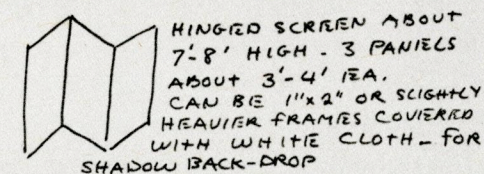 HINGED SCREEN ABOUT
7'-8' HIGH - 3 PANIELS
ABOUT 3'-4' EA.
CAN BE 1"x2" OR SLIGHTLY
HEAVIER FRAMES COVERED
WITH WHITE CLOTH - FOR
SHADOW BACK-DROP